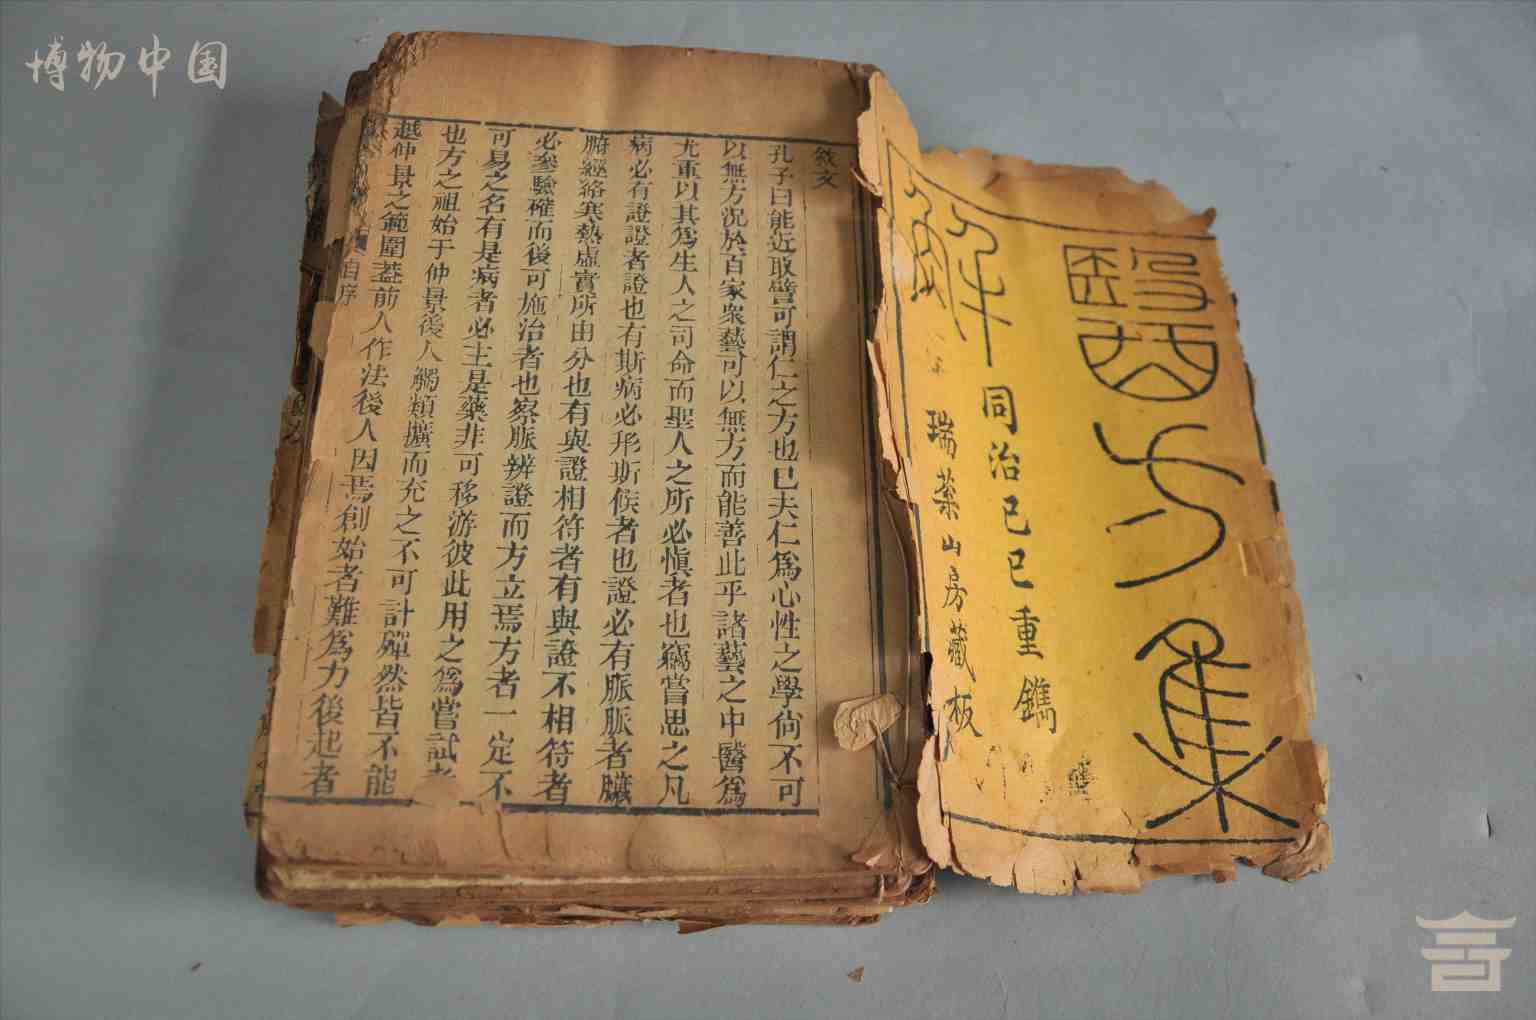 博物中国
醫方集
解
同治己巳重鐫
瑞蘂山房藏板
敘文
孔子曰能近取譬可謂仁之方也已夫仁爲心性之學尙不可
以無方況於百家衆藝可以無方而能善此乎諸藝之中醫爲
尤重以其爲生人之司命而聖人之所必愼者也竊嘗思之凡
病必有證證者證也有斯病必形斯候者也證必有脈脈者臟
腑經絡寒熱虛實所由分也有與證相符者有與證不相符者
必參驗確而後可施治者也察脈辨證而方立焉方者一定不
可易之名有是病者必主是藥非可移游彼此用之爲嘗試者
也方之祖始于仲景後人觸類擴而充之不可計殫然皆不能
越仲景之範圍蓋前人作法後人因焉創始者難爲力後起者
自序